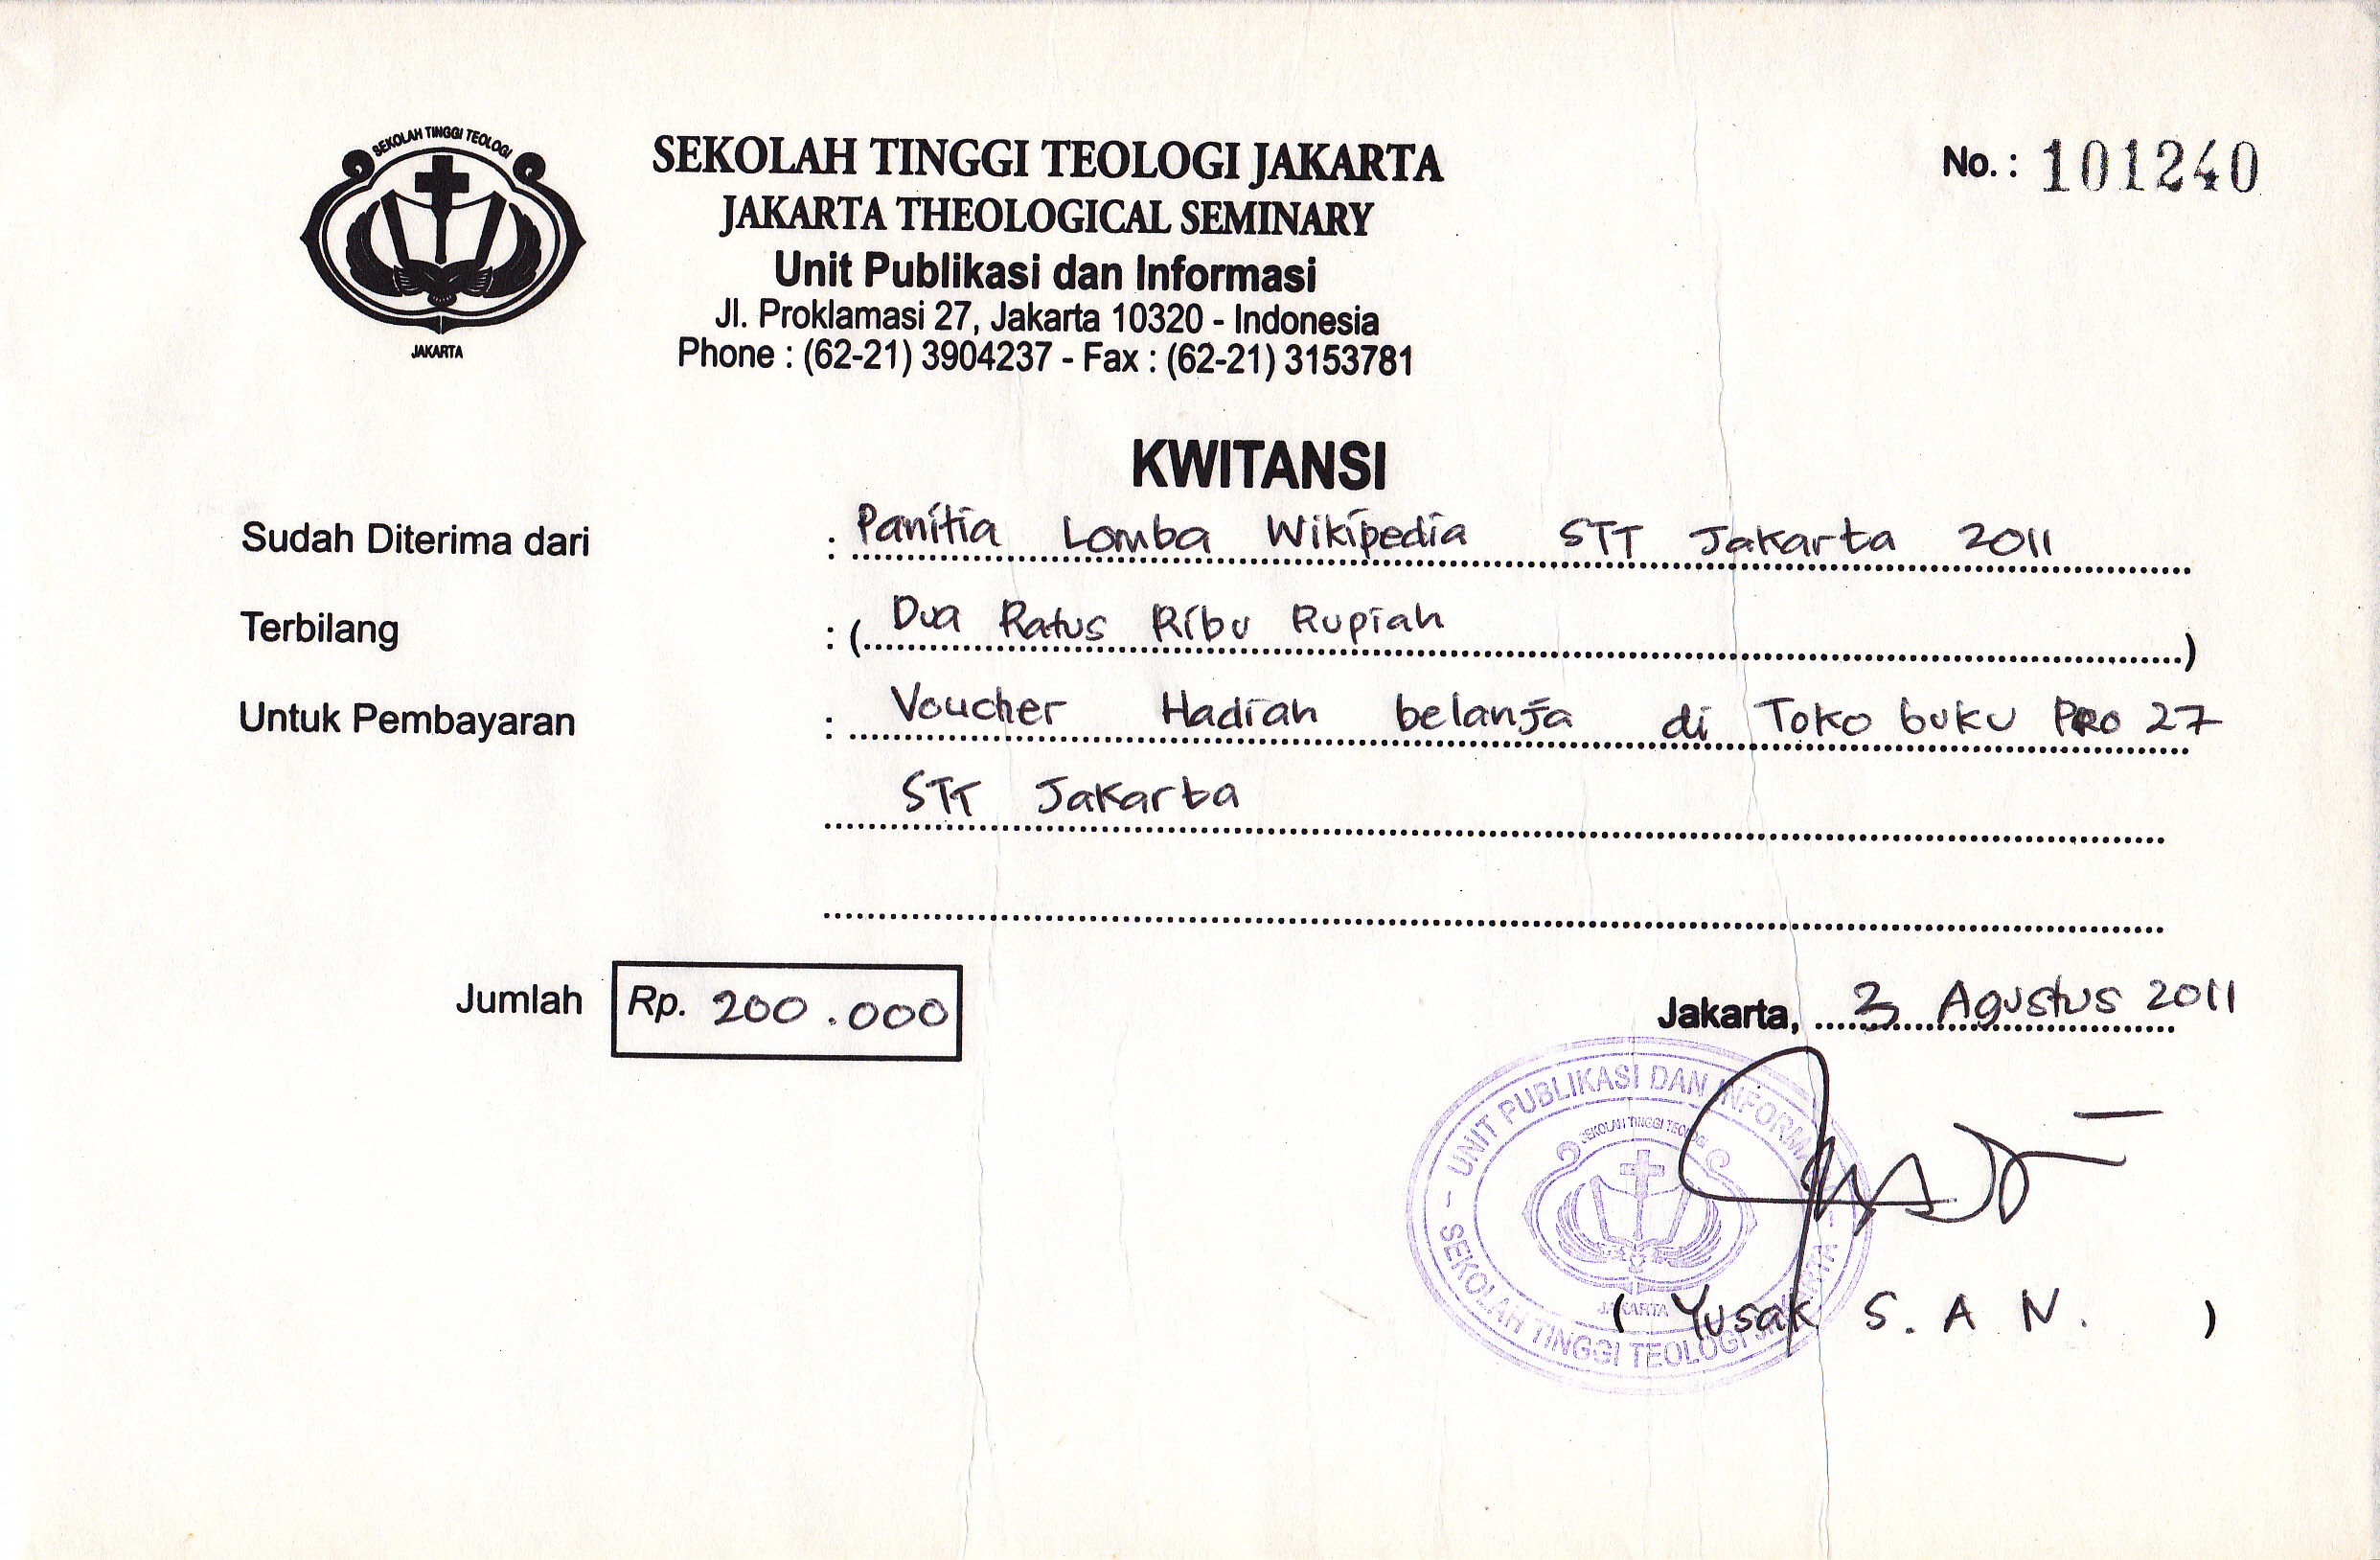 SEKOLAH TINGGI TEOLOGI
JAKARTA
SEKOLAH TINGGI TEOLOGI JAKARTA
JAKARTA THEOLOGICAL SEMINARY
Unit Publikasi dan Informasi
Jl. Proklamasi 27, Jakarta 10320 - Indonesia
Phone : (62-21) 3904237 - Fax : (62-21) 3153781
No. : 101240
KWITANSI
Sudah Diterima dari : Panitia Lomba Wikipedia STT Jakarta 2011
Terbilang : ( Dua Ratus Ribu Rupiah )
Untuk Pembayaran : Voucher Hadiah belanja di Toko buku PRO 27
STT Jakarta
Jumlah Rp. 200.000
Jakarta, 3 Agustus 2011
- UNIT PUBLIKASI DAN INFORMASI -
SEKOLAH TINGGI TEOLOGI JAKARTA
SEKOLAH TINGGI TEOLOGI
JAKARTA
( Yusak S. A N. )